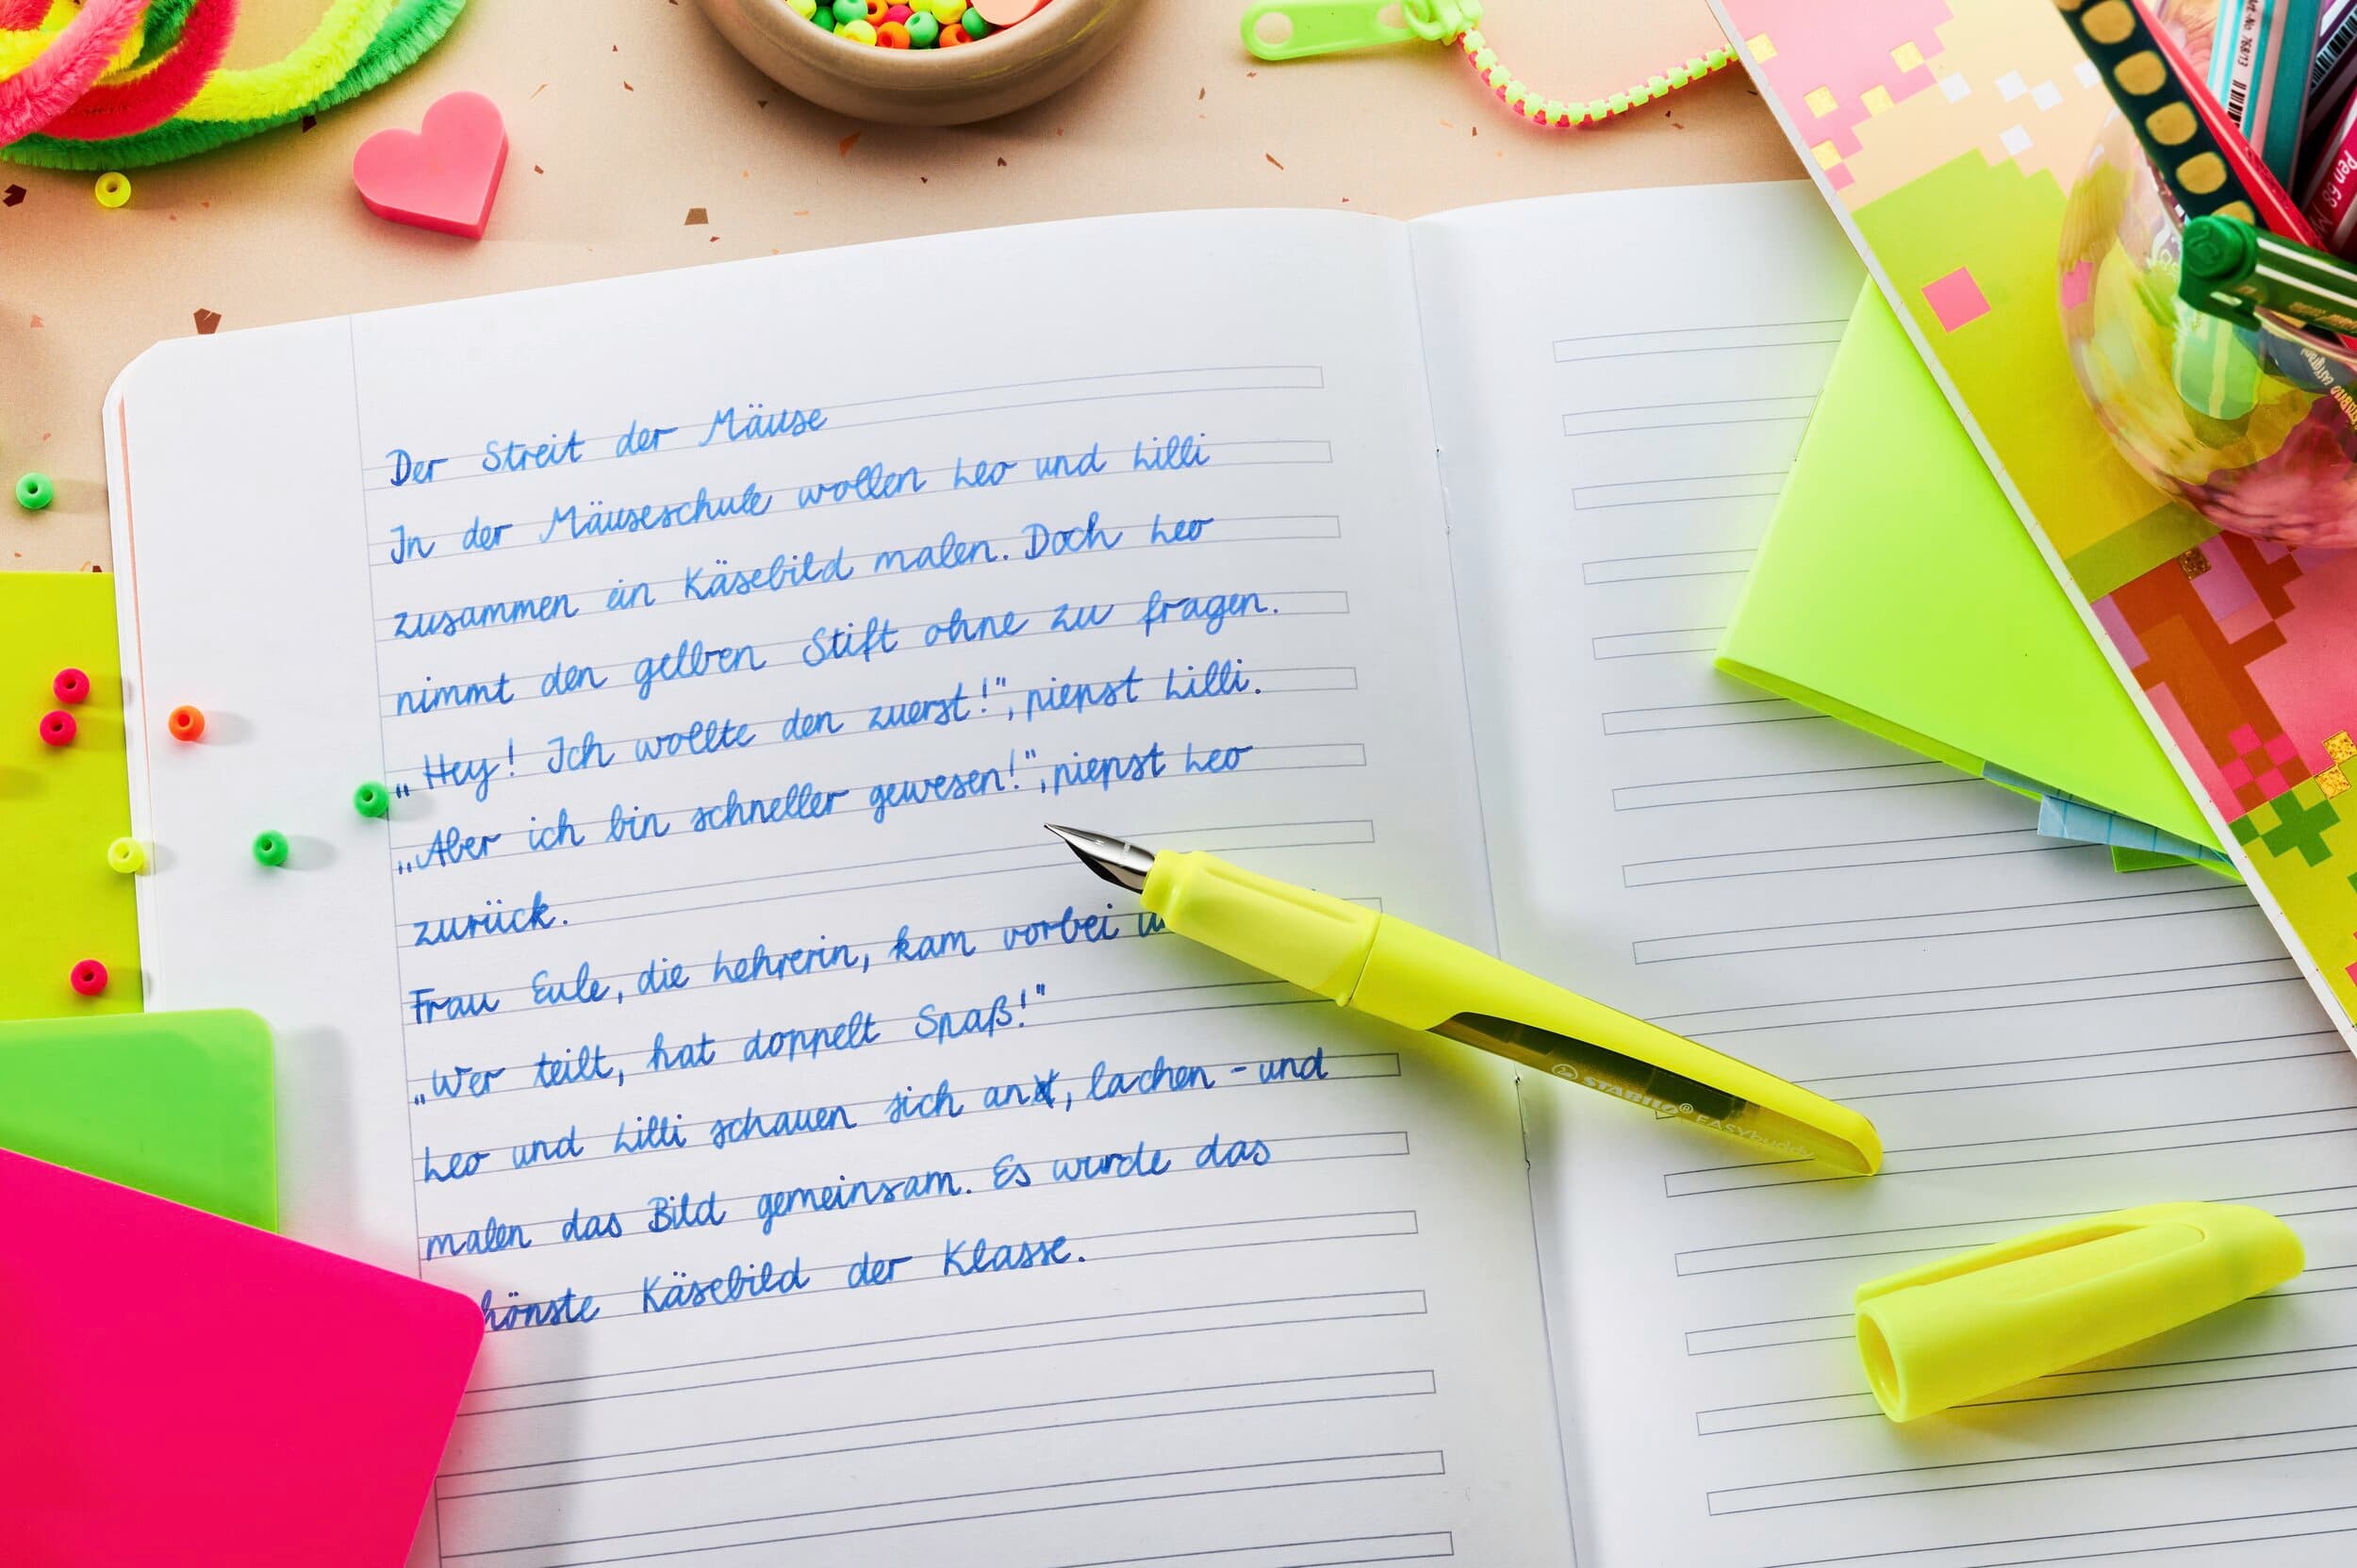 Der Streit der Mäuse
In der Mäuseschule wollen Leo und Lilli
zusammen ein Käsebild malen. Doch Leo
nimmt den gelben Stift ohne zu fragen.
„Hey! Ich wollte den zuerst!", piepst Lilli.
„Aber ich bin schneller gewesen!", piepst Leo
zurück.
Frau Eule, die Lehrerin, kam vorbei
„Wer teilt, hat doppelt Spaß!"
Leo und Lilli schauen sich an, lachen - und
malen das Bild gemeinsam. Es wurde das
hönste Käsebild der Klasse.
STABILO® EASYbuddy
Art.-No 768/13
Pen 68